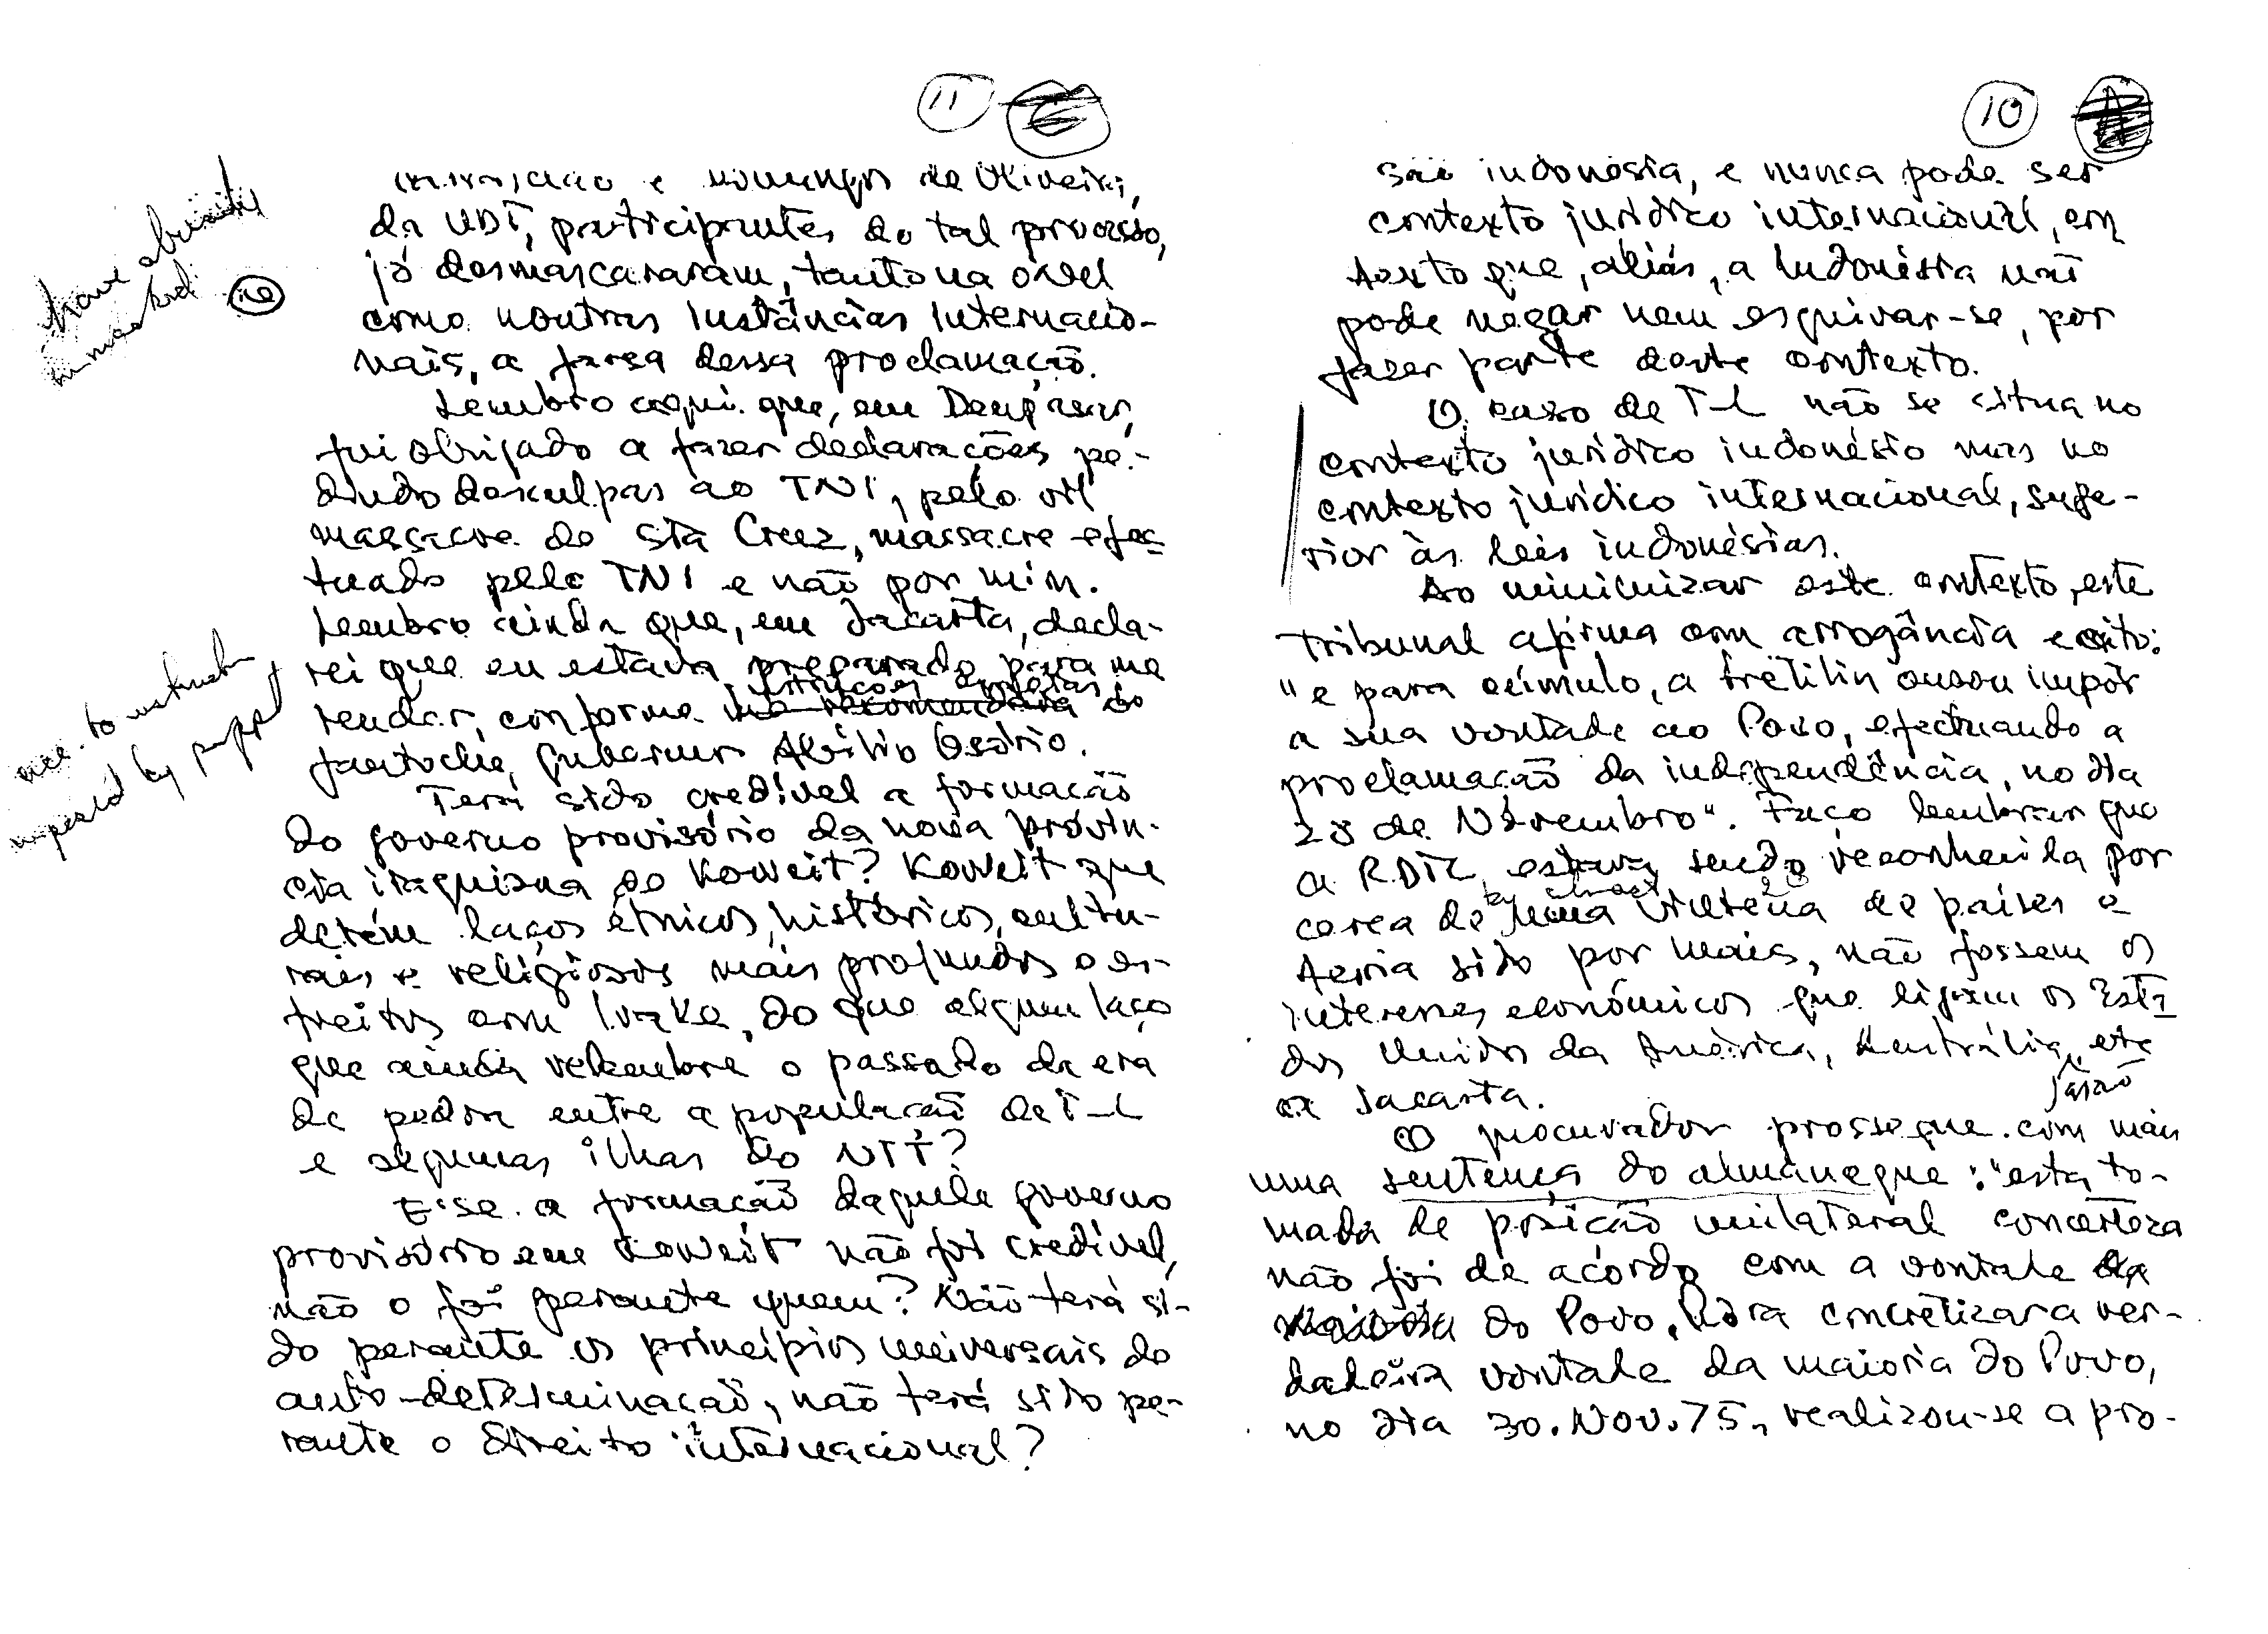 11
e Domingos de Oliveira,
da UDT, participantes do tal processo,
já desmascararam, tanto na ONU
como noutras instâncias internacio-
nais, a farsa dessa proclamação.
Lembro aqui que, em Denpasar,
fui obrigado a fazer declarações pe-
dindo desculpas ao TNI, pelo vil
massacre de Sta Cruz, massacre efec
tuado pelo TNI e não por mim.
Lembro ainda que, em Jacarta, decla-
rei que eu estava preparado para me
render, conforme instruções do
fantoche, Abílio Osório.
Terá sido credível a formação
do governo provisório da nova provín-
cia iraquiana do Koweit? Koweit que
detém laços étnicos, históricos, cultu-
rais e religiosos mais profundos e es-
treitos com Irake, do que algum laço
que ainda relembre o passado da era
da pedra entre a população de T-L
e algumas ilhas do NTT?
E se a formação daquele governo
provisório em Koweit não foi credível,
não o foi perante quem? Não terá si-
do perante os princípios universais do
auto-determinação, não terá sido pe-
rante o direito internacional?
have
unmasked
by puppet
10
são indonésia, e nunca pode ser
contexto jurídico internacional, con
texto que, aliás, a Indonésia não
pode negar nem esquivar-se, por
fazer parte deste contexto.
O caso de T-L não se situa no
contexto jurídico indonésio mas no
contexto jurídico internacional, supe-
rior às leis indonésias.
Ao minimizar este contexto, este
Tribunal afirma com arrogância e cito:
"e para cúmulo, a Fretilin ousou impôr
a sua vontade ao Povo, efectuando a
proclamação da independência, no dia
28 de Novembro". Faço lembrar que
a RDTL estava sendo reconhecida por
cerca de uma vintena de países e
teria sido por mais, não fossem os
interesses económicos que ligam os Esta
dos Unidos da América, Austrália, etc
a Jacarta.
Japão
O procurador prossegue com mais
uma sentença do almanaque: "esta to-
mada de posição unilateral concerteza
não foi de acôrdo com a vontade da
maioria do Povo. Para concretizar a ver-
dadeira vontade da maioria do Povo,
no dia 30.Nov.75, realizou-se a pro-